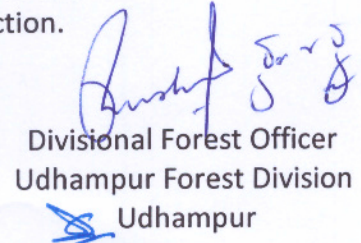 ction.
Divisional Forest Officer
Udhampur Forest Division
Udhampur